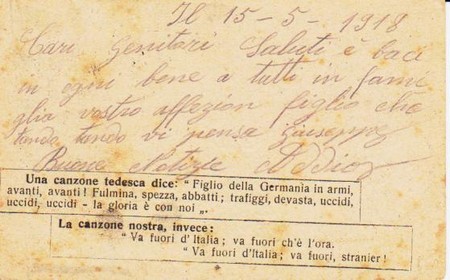 Il 15-5-1918
Cari genitori Saluti è baci
in ogni bene a tutti in fami
glia vostro affezion figlio che
tando tando vi pensa Giuseppe
Buone Notizie Addio
Una canzone tedesca dice: “Figlio della Germania in armi,
avanti, avanti! Fulmina, spezza, abbatti; trafiggi, devasta, uccidi,
uccidi, uccidi - la gloria è con noi „.
La canzone nostra, invece:
“Va fuori d'Italia; va fuori ch'è l'ora.
“Va fuori d'Italia; va fuori, stranier!